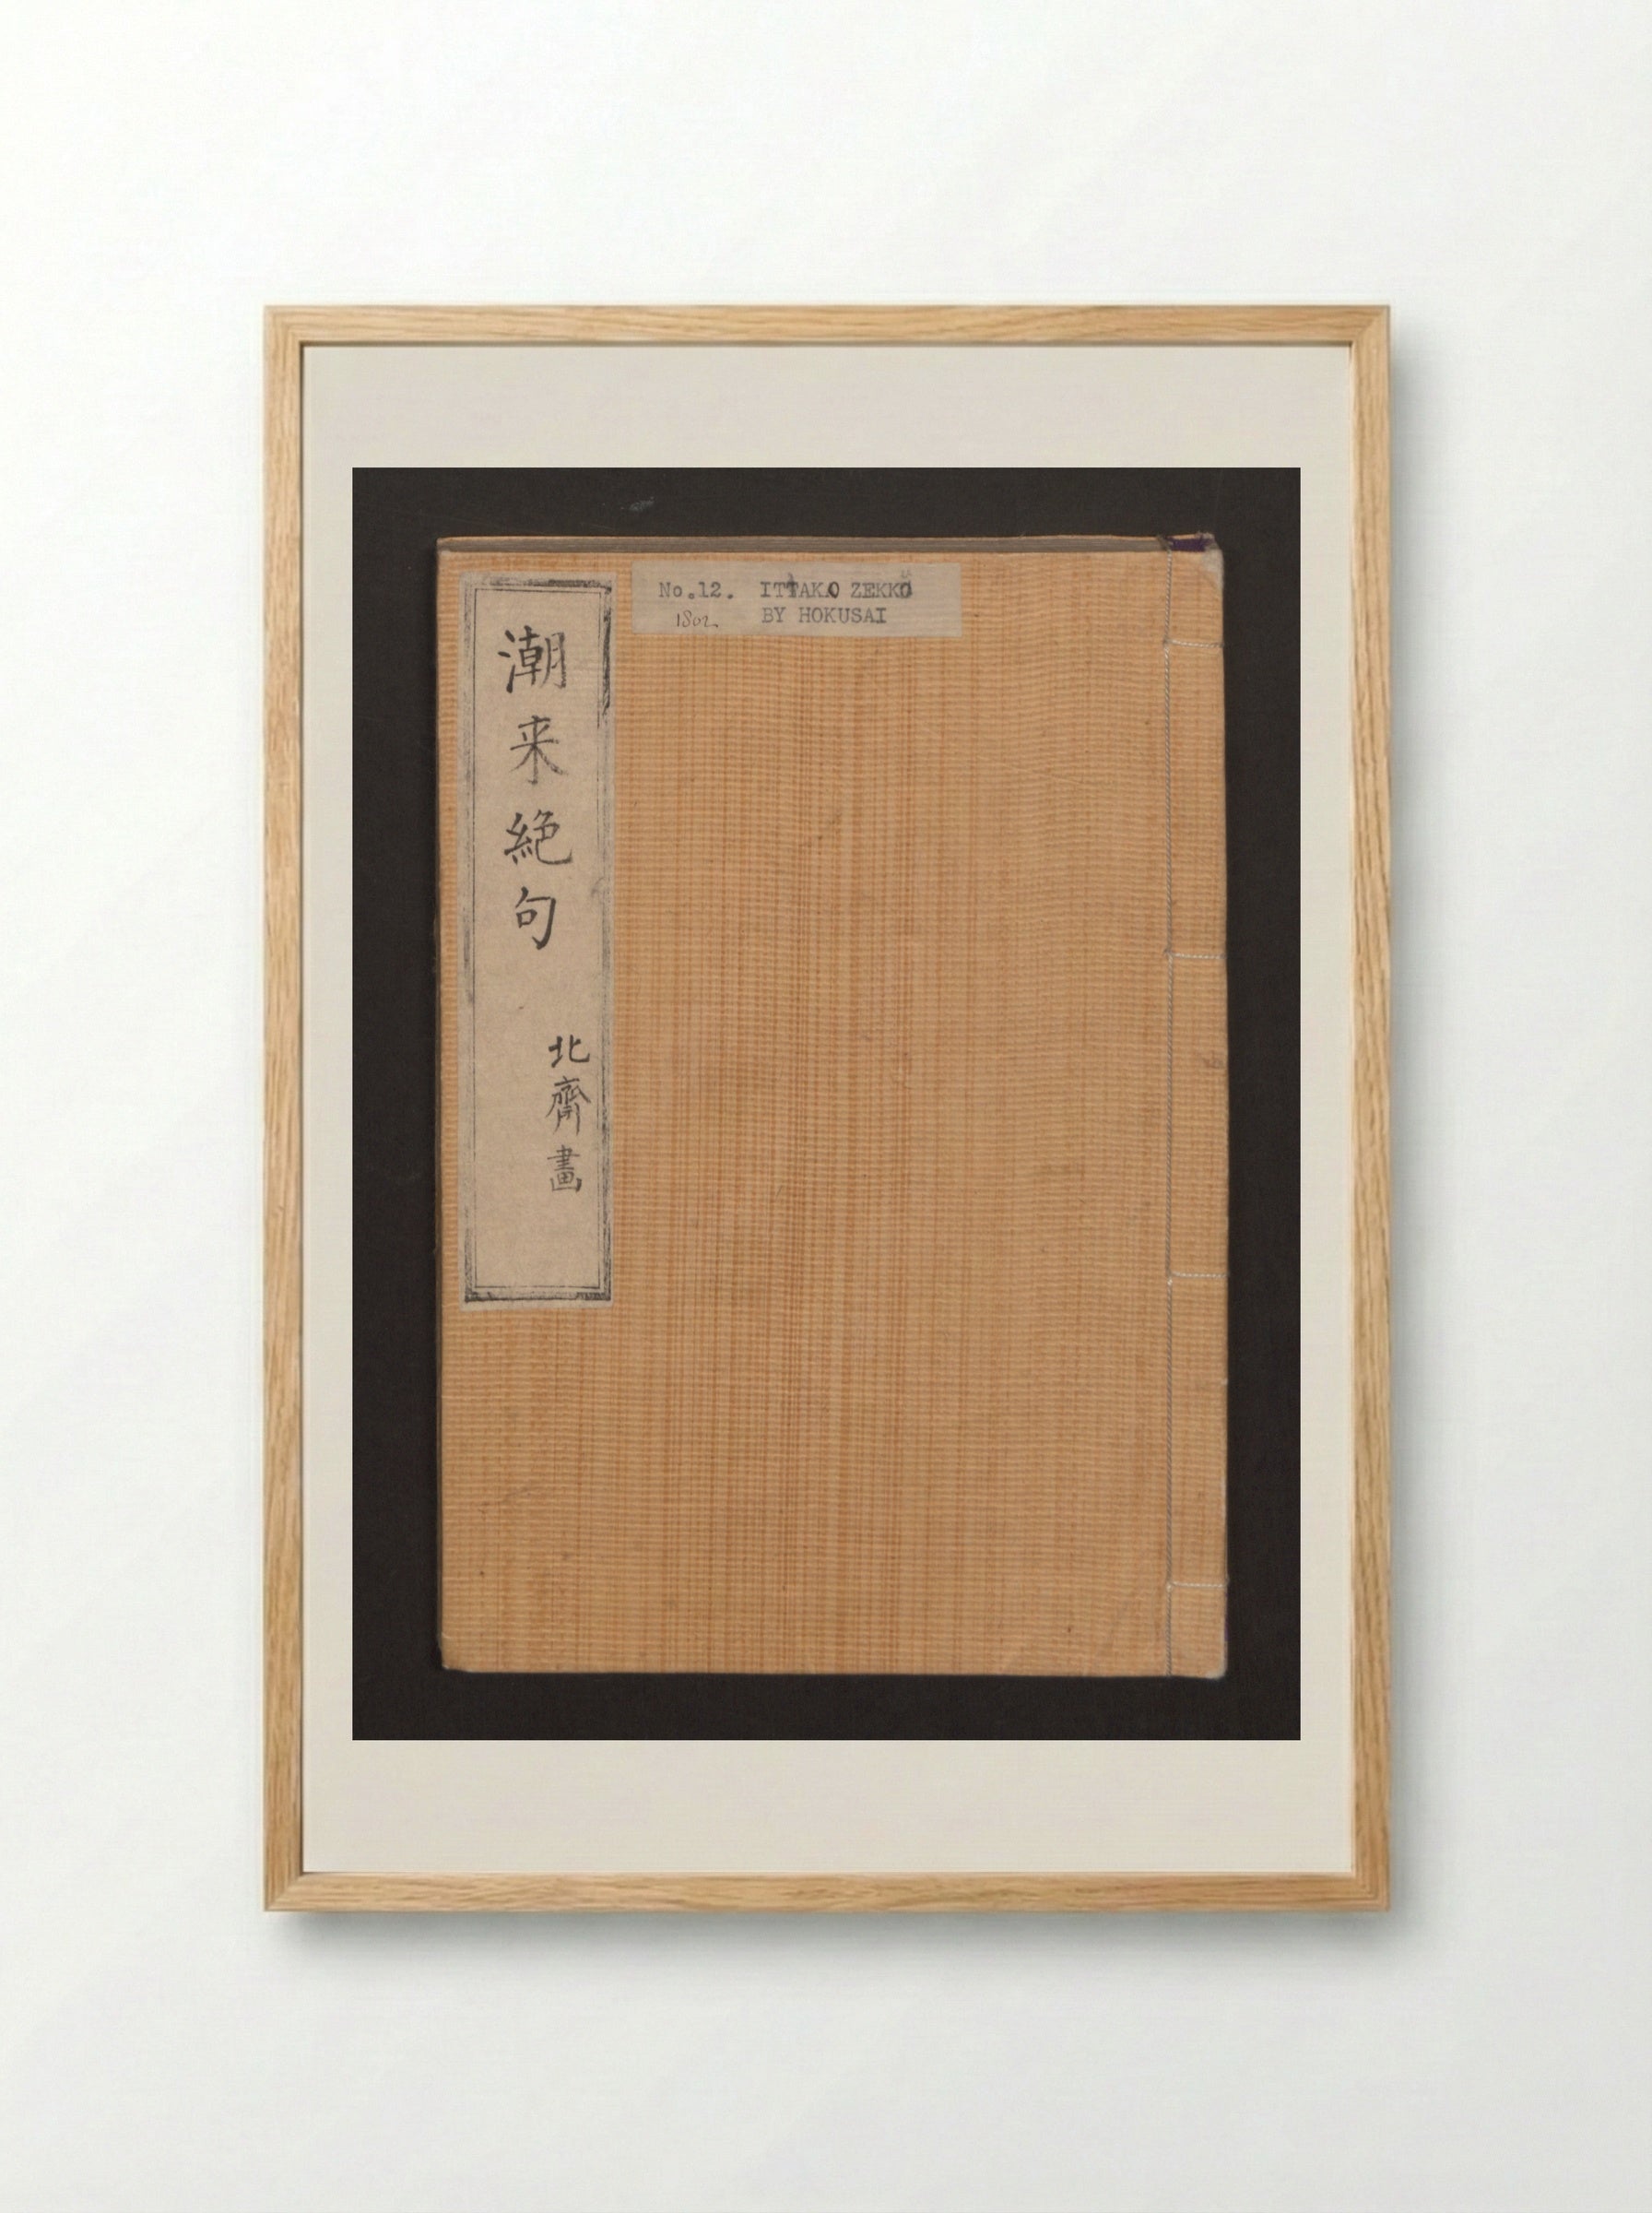 潮来絶句
北齋畫
No.12. ITTAKO ZEKKŌ
1802
BY HOKUSAI